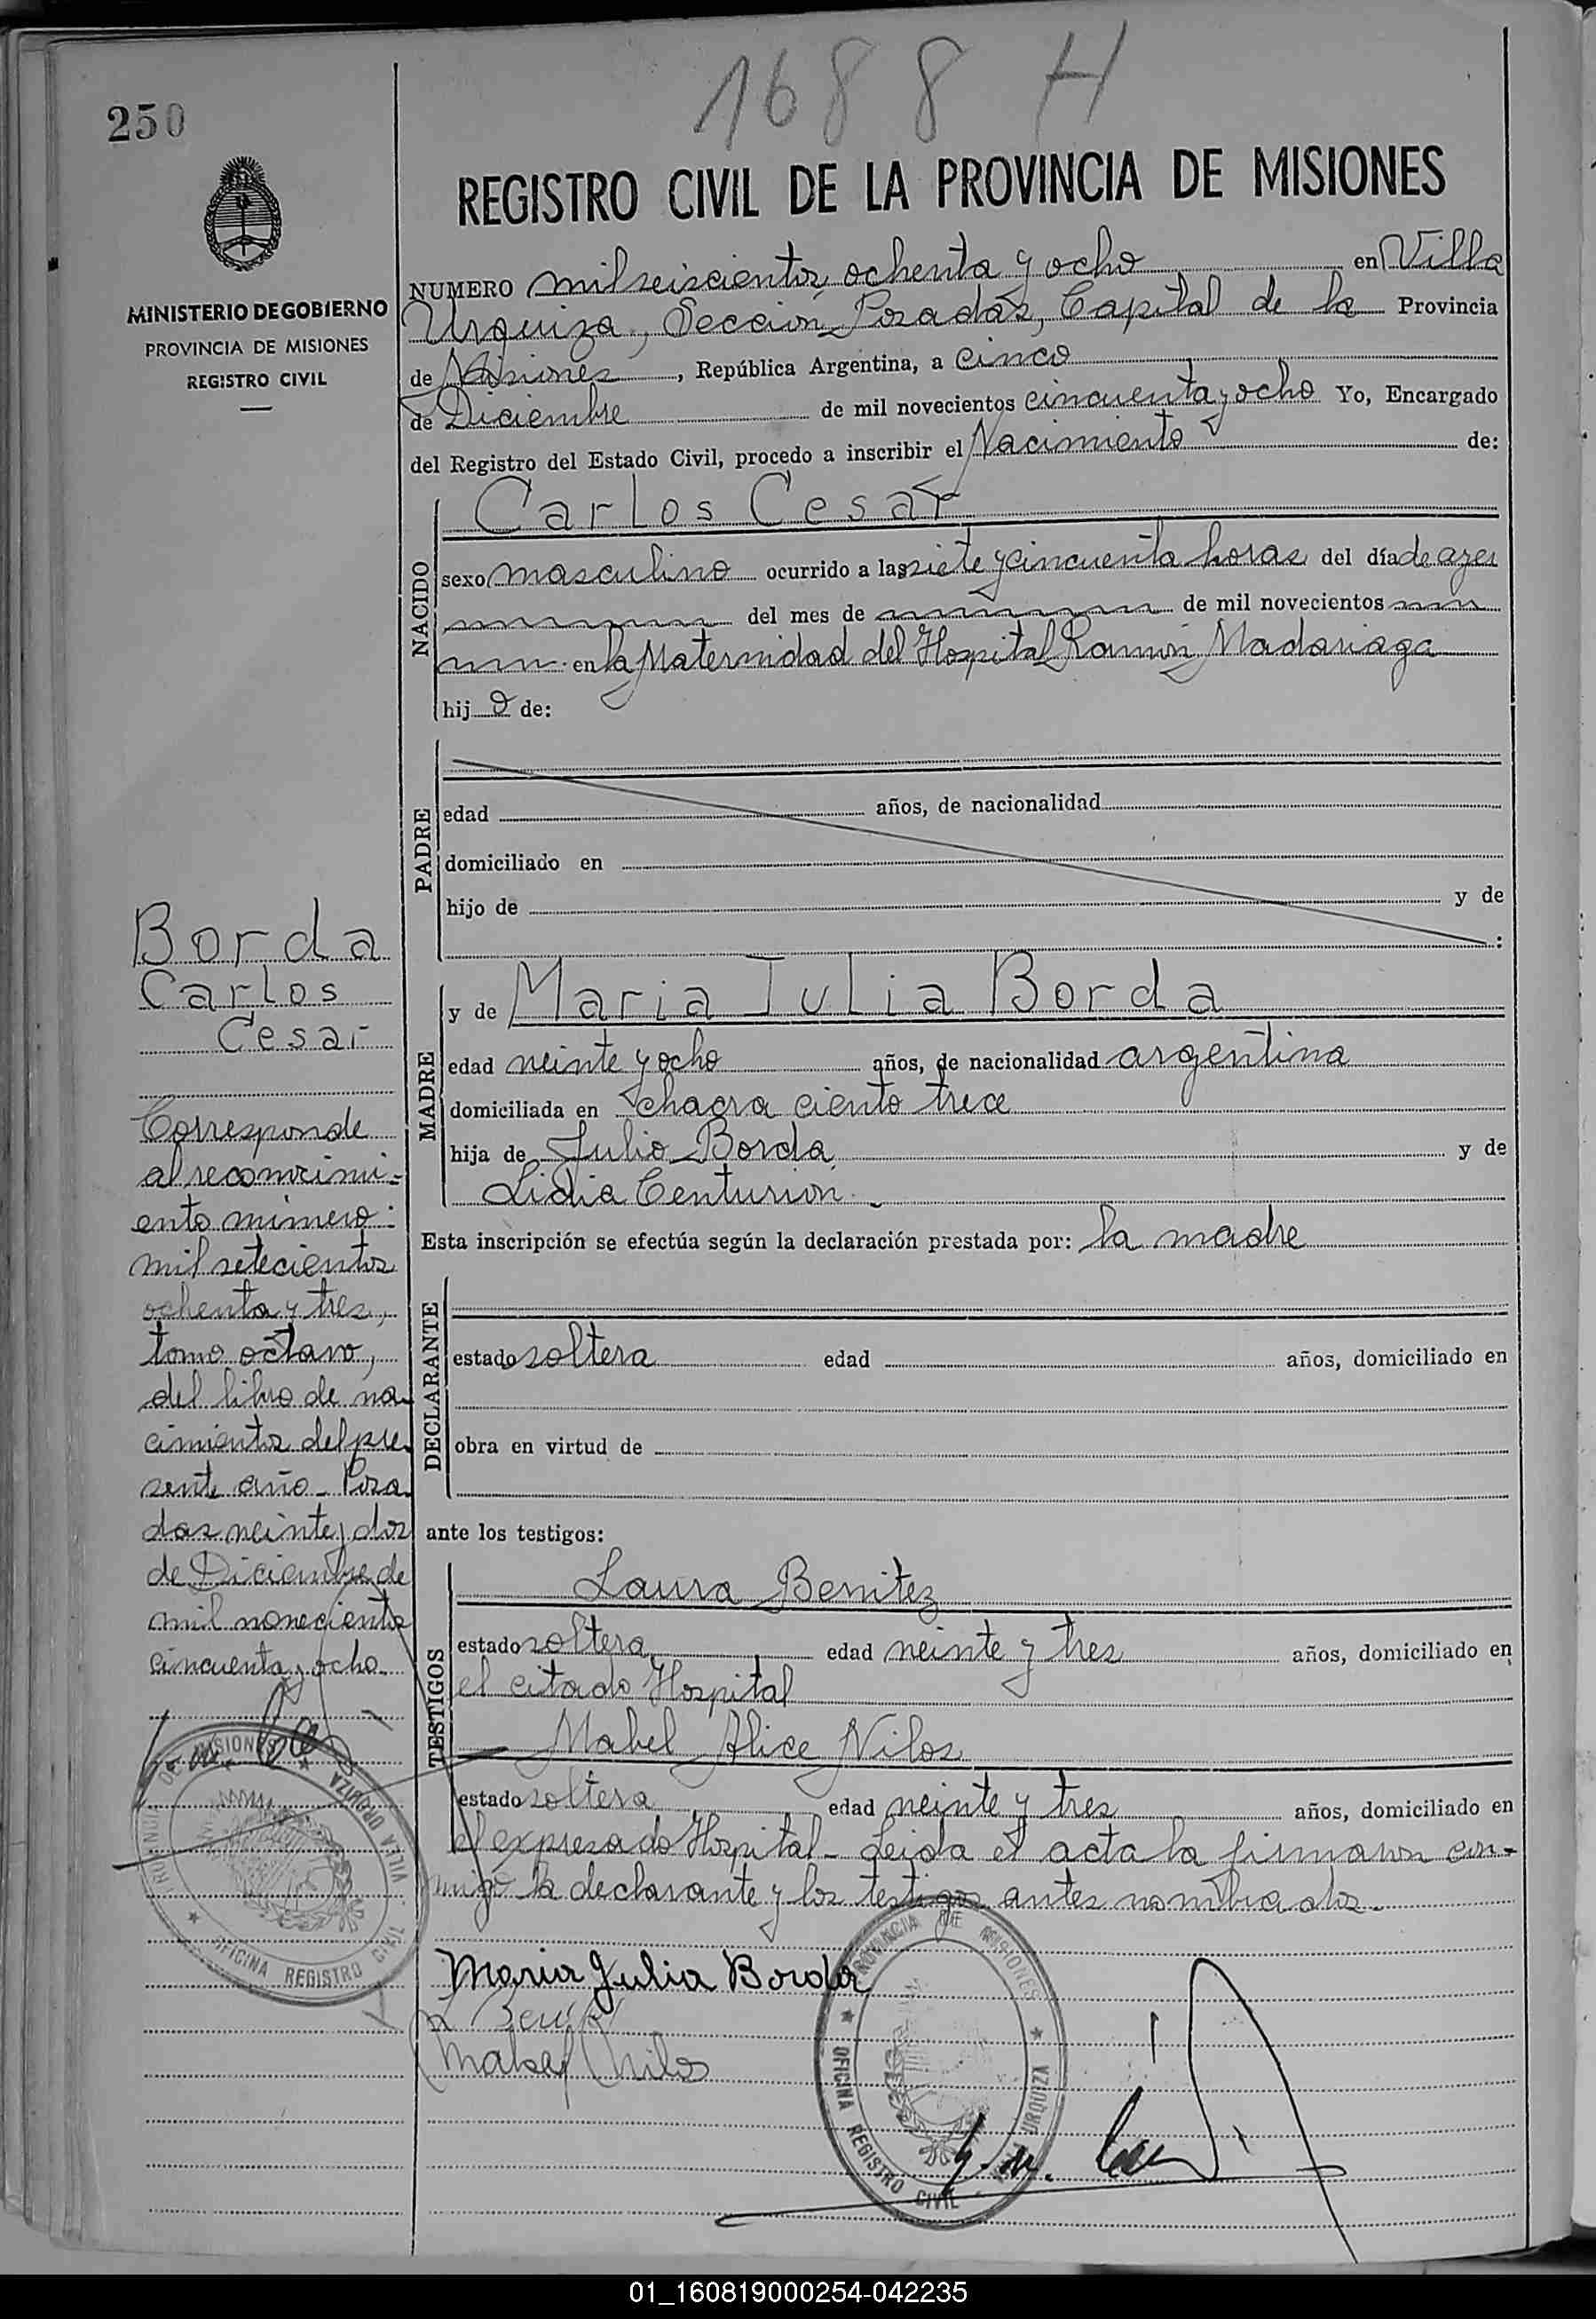 1688 H
250
REGISTRO CIVIL DE LA PROVINCIA DE MISIONES
MINISTERIO DE GOBIERNO
PROVINCIA DE MISIONES
REGISTRO CIVIL
NUMERO mil seiscientos ochenta y ocho en Villa
Urquiza, Sección Posadas, Capital de la Provincia
de Misiones, República Argentina, a cinco
de Diciembre de mil novecientos cincuenta y ocho Yo, Encargado
del Registro del Estado Civil, procedo a inscribir el Nacimiento de:
NACIDO
Carlos Cesar
sexo masculino ocurrido a las siete y cincuenta horas del día de ayer
del mes de de mil novecientos
en la Maternidad del Hospital Ramón Madariaga
hijo de:
PADRE
edad años, de nacionalidad
domiciliado en
hijo de y de
:
MADRE
y de Maria Julia Borda
edad veinte y ocho años, de nacionalidad argentina
domiciliada en chacra ciento trece
hija de Julio Borda y de
Lidia Centurion.
Esta inscripción se efectúa según la declaración prestada por: la madre
DECLARANTE
estado soltera edad años, domiciliado en
obra en virtud de
ante los testigos:
TESTIGOS
Laura Benitez
estado soltera edad veinte y tres años, domiciliado en
el citado Hospital
Mabel Alice Nilos
estado soltera edad veinte y tres años, domiciliado en
el expresado Hospital - Leida el acta la firmaron con-
migo la declarante y los testigos antes nombrados.
Maria Julia Borda
Mabel Nilos
PROVINCIA DE MISIONES
OFICINA REGISTRO CIVIL
URQUIZA
Borda
Carlos
Cesar
Corresponde
al reconocimi-
ento número:
mil setecientos
ochenta y tres,
tomo octavo,
del libro de na-
cimientos del pre-
sente año - Posa-
das veinte y dos
de Diciembre de
mil novecientos
cincuenta y ocho
MISIONES
VILLA URQUIZA
OFICINA REGISTRO CIVIL
01_160819000254-042235